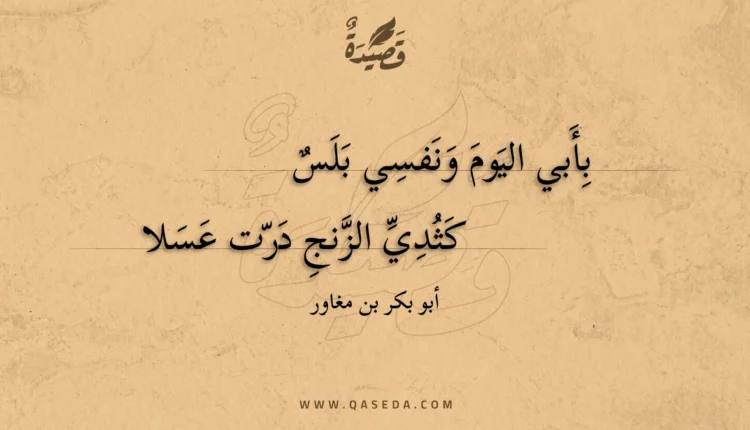 قَصِيدَةٌ
بِأَبي اليَومَ وَنَفسِي بَلَسٌ
كَثُدِيِّ الزَّنجِ دَرّت عَسَلا
أبو بكر بن مغاور
WWW.QASEDA.COM